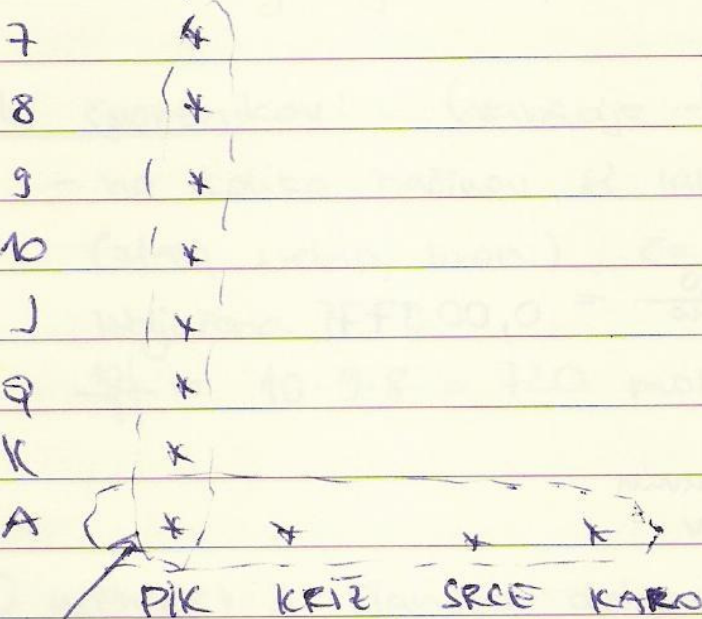 7 *
8 *
9 *
10 *
J *
Q *
K *
A * * * *
PIK KRIŽ SRCE KARO